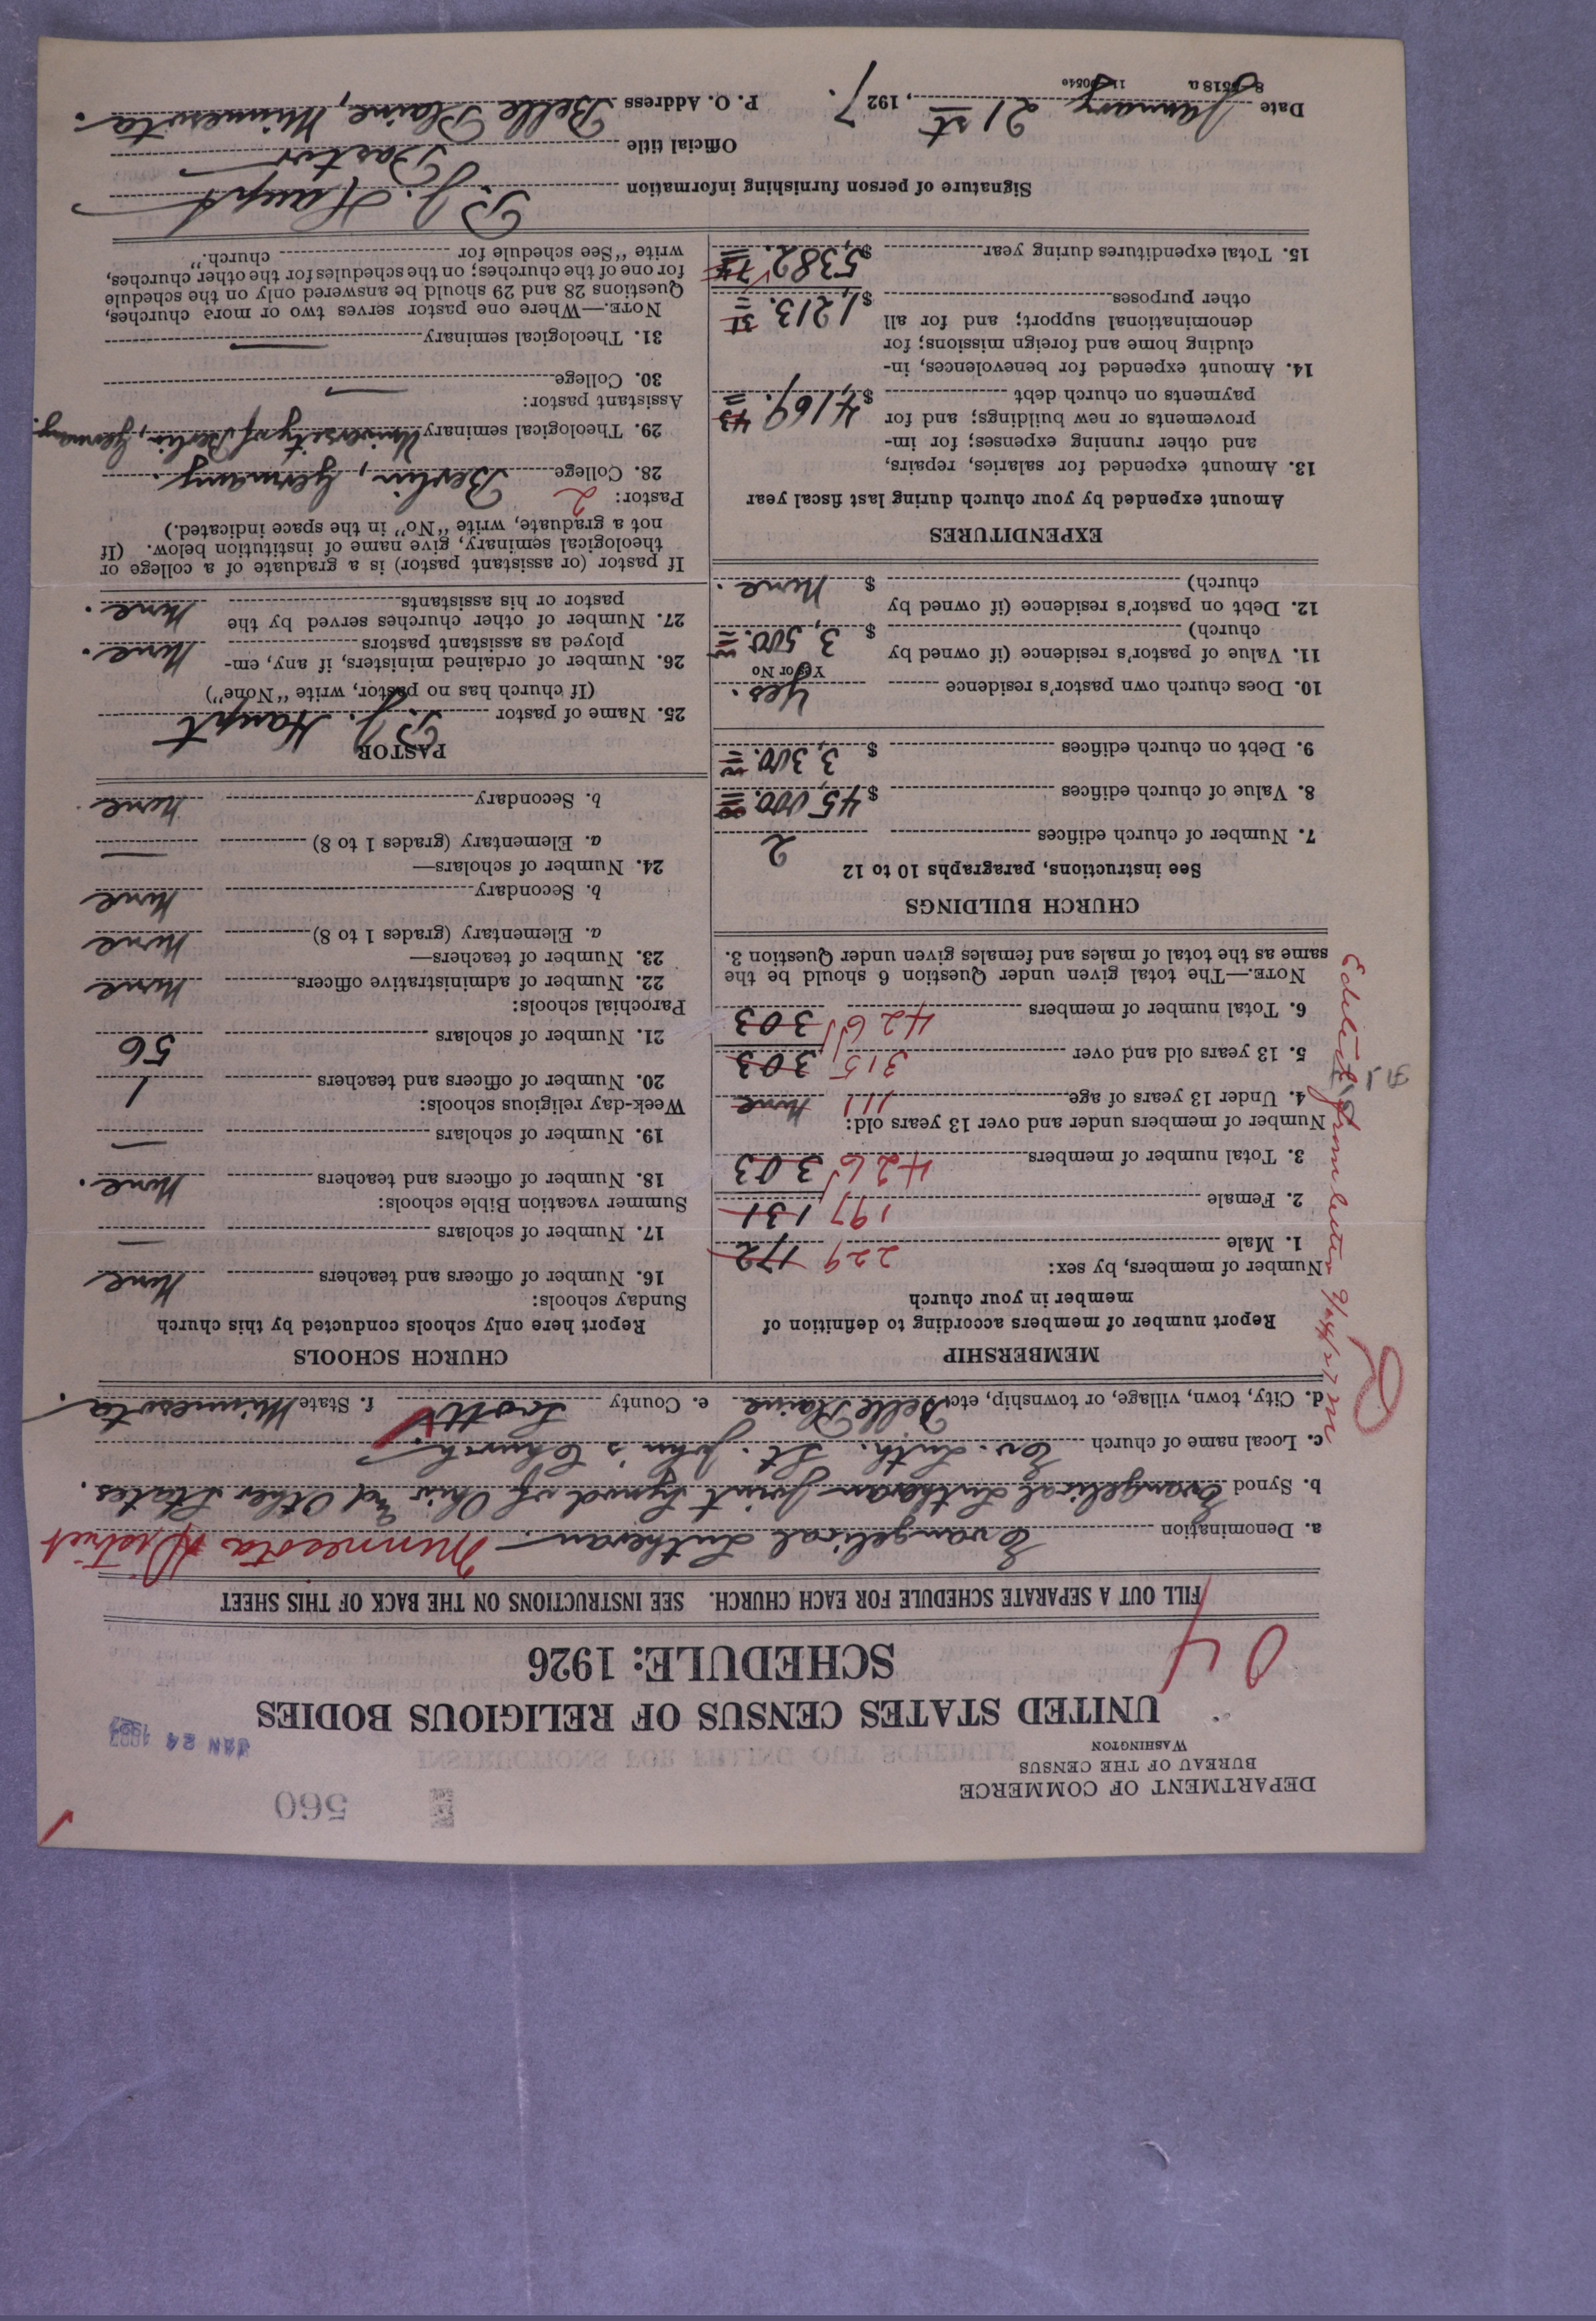 560
DEPARTMENT OF COMMERCE
BUREAU OF THE CENSUS
WASHINGTON
JAN 24 1927
UNITED STATES CENSUS OF RELIGIOUS BODIES
SCHEDULE: 1926
04
FILL OUT A SEPARATE SCHEDULE FOR EACH CHURCH. SEE INSTRUCTIONS ON THE BACK OF THIS SHEET
a. Denomination Evangelical Lutheran. Minnesota District
b. Synod Evangelical Lutheran Joint Synod of Ohio and Other States.
c. Local name of church Ev. Luth. St. John's Church.
d. City, town, village, or township, etc. Belle Plaine e. County Scott f. State Minnesota.
MEMBERSHIP
Report number of members according to definition of
member in your church
Number of members, by sex:
1. Male 229 172
2. Female 197 131
3. Total number of members 426 303
Number of members under and over 13 years old:
4. Under 13 years of age 111 None
5. 13 years old and over 315 303
6. Total number of members 426 303
NOTE.—The total given under Question 6 should be the
same as the total of males and females given under Question 3.
CHURCH BUILDINGS
See instructions, paragraphs 10 to 12
7. Number of church edifices 2
8. Value of church edifices $45,000.00
9. Debt on church edifices $3,300.
10. Does church own pastor's residence Yes.
Yes or No
11. Value of pastor's residence (if owned by
church) $3,500.
12. Debt on pastor's residence (if owned by
church) $None.
EXPENDITURES
Amount expended by your church during last fiscal year
13. Amount expended for salaries, repairs,
and other running expenses; for im-
provements or new buildings; and for
payments on church debt $4,169.43
14. Amount expended for benevolences, in-
cluding home and foreign missions; for
denominational support; and for all
other purposes $1,213.31
15. Total expenditures during year $5,382.74
CHURCH SCHOOLS
Report here only schools conducted by this church
Sunday schools:
16. Number of officers and teachers None
17. Number of scholars —
Summer vacation Bible schools:
18. Number of officers and teachers None.
19. Number of scholars —
Week-day religious schools:
20. Number of officers and teachers 1
21. Number of scholars 56
Parochial schools:
22. Number of administrative officers None
23. Number of teachers—
a. Elementary (grades 1 to 8) None
b. Secondary None
24. Number of scholars—
a. Elementary (grades 1 to 8) —
b. Secondary None.
PASTOR
25. Name of pastor P. J. Haupt
(If church has no pastor, write "None")
26. Number of ordained ministers, if any, em-
ployed as assistant pastors None.
27. Number of other churches served by the
pastor or his assistants None.
If pastor (or assistant pastor) is a graduate of a college or
theological seminary, give name of institution below. (If
not a graduate, write "No" in the space indicated.)
Pastor: 2
28. College Berlin, Germany.
29. Theological seminary University of Berlin, Germany.
Assistant pastor:
30. College —
31. Theological seminary —
NOTE.—Where one pastor serves two or more churches,
Questions 28 and 29 should be answered only on the schedule
for one of the churches; on the schedules for the other churches,
write "See schedule for church."
Signature of person furnishing information P. J. Haupt
Official title Pastor
Date January 21st, 1927. P. O. Address Belle Plaine, Minnesota.
Edited from letter